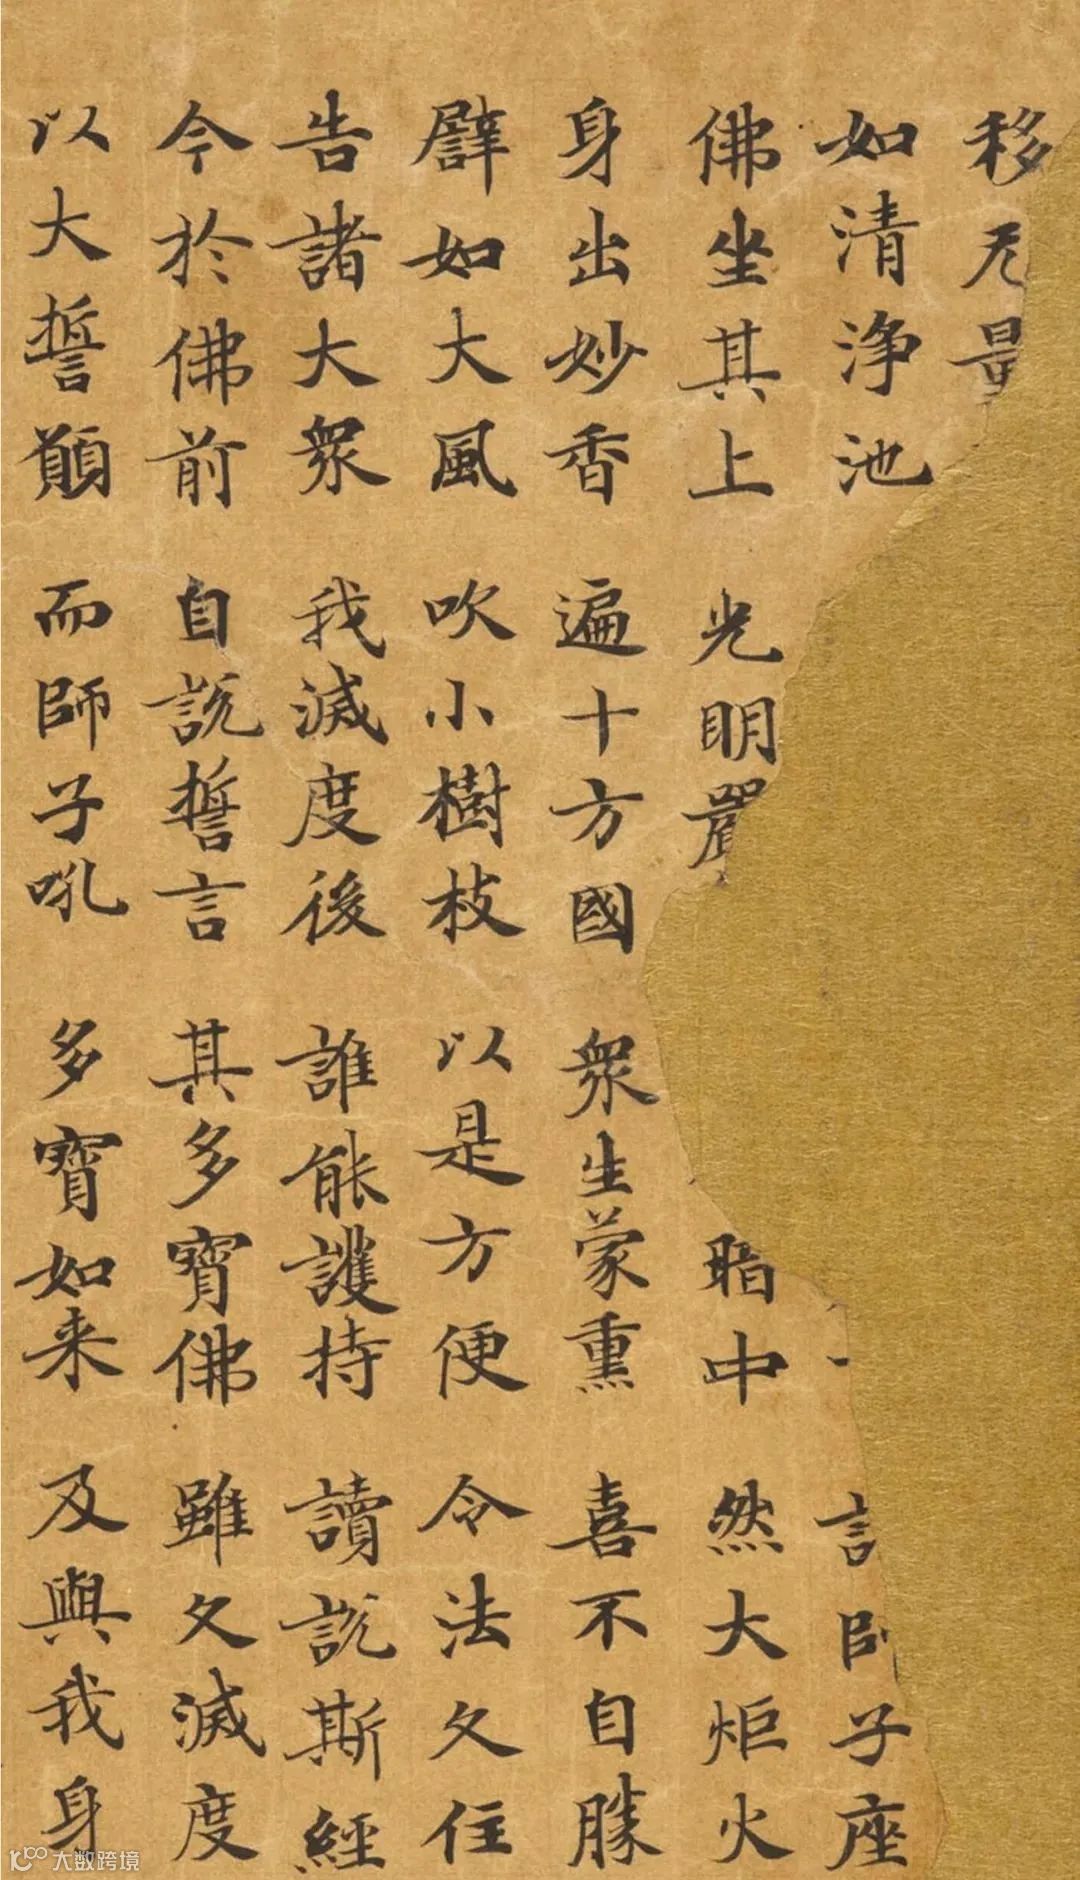 移无量
如清淨池 言師子座
佛坐其上 光明嚴 暗中 然大炬火
身出妙香 遍十方國 眾生蒙熏 喜不自勝
譬如大風 吹小樹枝 以是方便 令法久住
告諸大眾 我滅度後 誰能護持 讀說斯經
今於佛前 自說誓言 其多寶佛 雖久滅度
以大誓願 而師子吼 多寶如来 及與我身
大数跨境